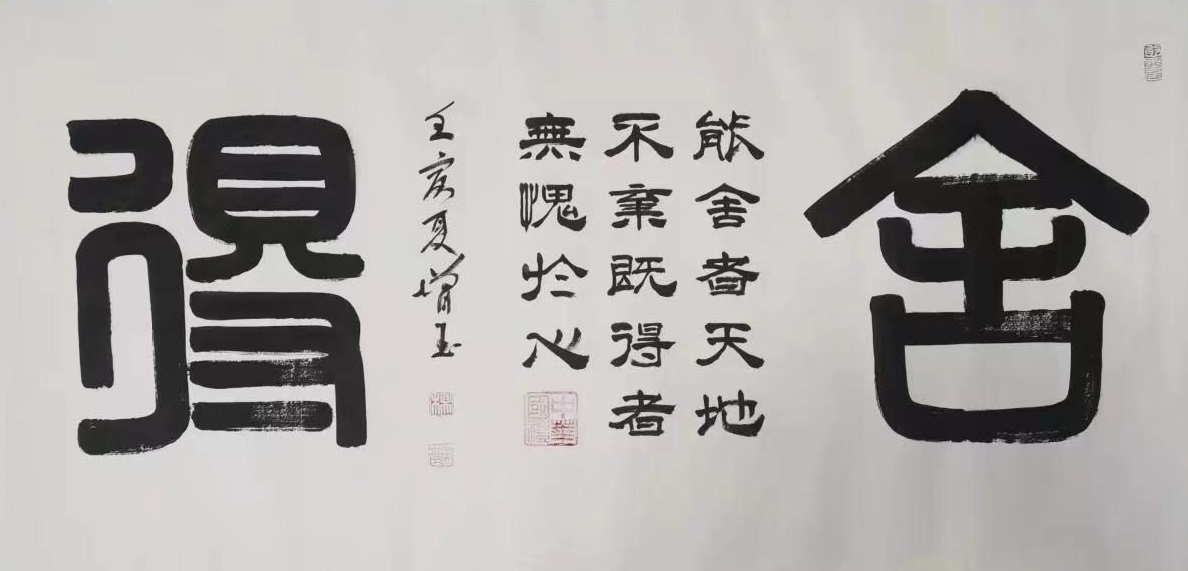 舍
能舍者天地
不棄既得者
無愧於心
壬寅夏增玉
中華國禮
得